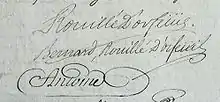 Rouillé D'orfeuil.
Bernard, Rouillé D'orfeuil
Antoine